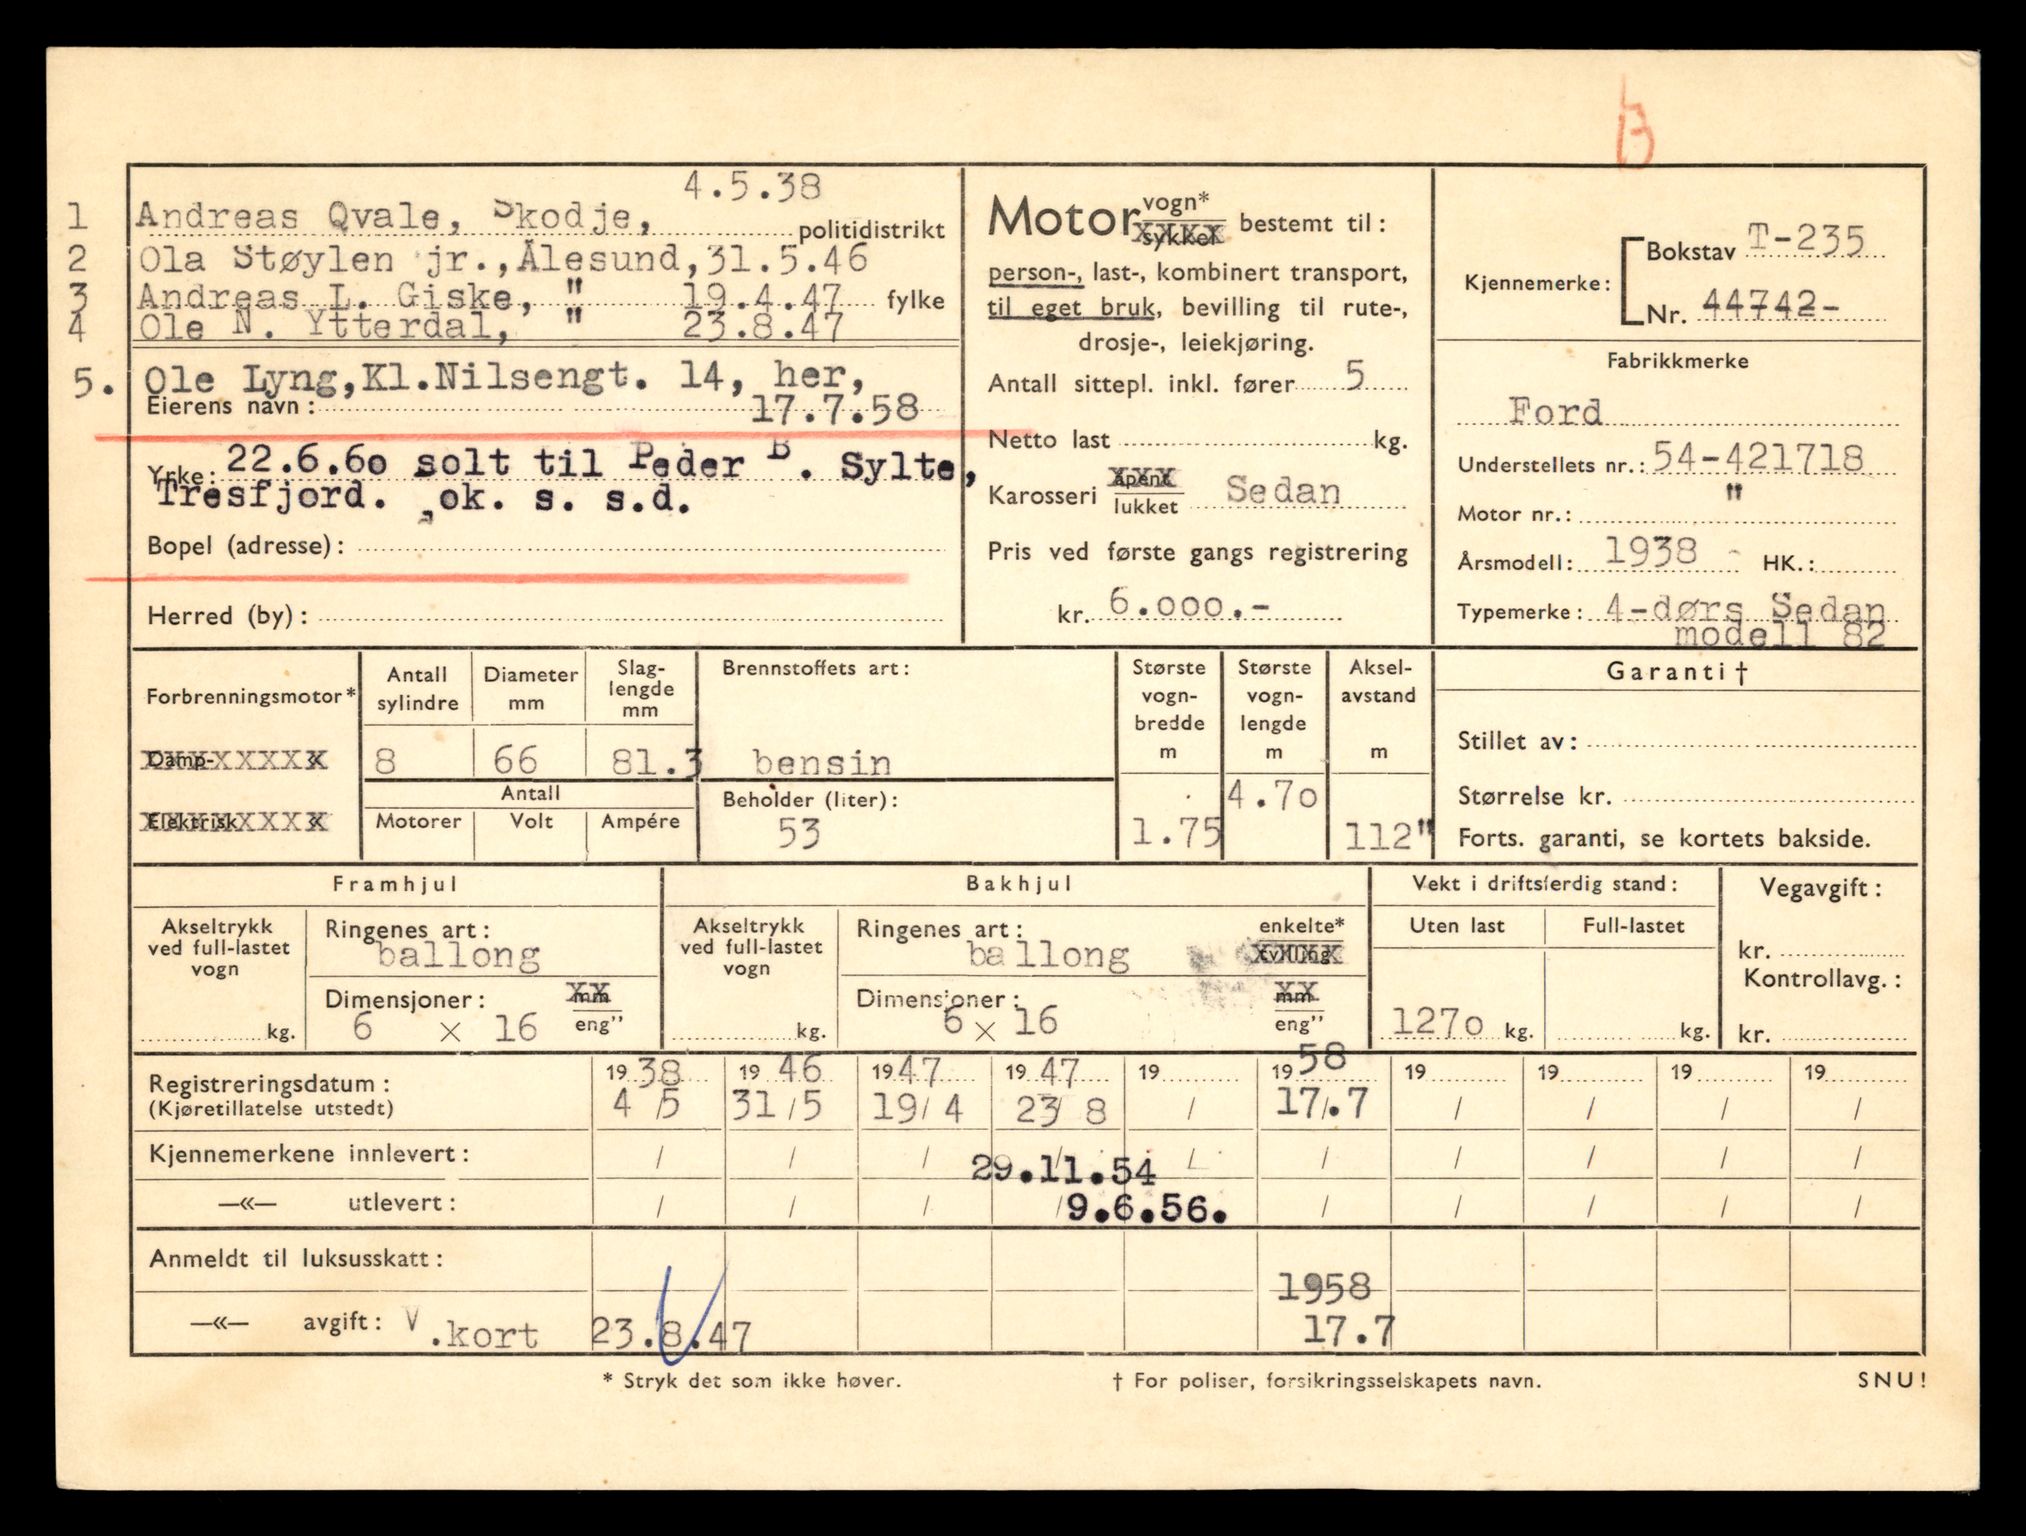 B
4.5.38
1 Andreas Qvale, Skodje, politidistrikt
2 Ola Støylen jr., Ålesund, 31.5.46
3 Andreas L. Giske, " 19.4.47 fylke
4 Ole N. Ytterdal, " 23.8.47
5. Ole Lyng, Kl.Nilsengt. 14, her,
Eierens navn: 17.7.58
Yrke: 22.6.60 solt til Peder B. Sylte,
Tresfjord. ok. s. s.d.
Bopel (adresse):
Herred (by):
Motor vogn* sykkel bestemt til:
person-, last-, kombinert transport,
til eget bruk, bevilling til rute-,
drosje-, leiekjøring.
Antall sittepl. inkl. fører 5
Netto last kg.
Karosseri åpent lukket Sedan
Pris ved første gangs registrering
kr. 6.000.-
Kjennemerke: Bokstav T-235
Nr. 44742-
Fabrikkmerke
Ford
Understellets nr.: 54-421718
Motor nr.: "
Årsmodell: 1938 - HK.:
Typemerke: 4-dørs Sedan
modell 82
Forbrenningsmotor*
Damp- «
Elektrisk «
Antall sylindre
Diameter mm
Slag-lengde mm
8 66 81.3
Antall
Motorer Volt Ampére
Brennstoffets art:
bensin
Beholder (liter):
53
Største vogn-bredde m
1.75
Største vogn-lengde m
4.70
Aksel-avstand m
112"
Garanti †
Stillet av:
Størrelse kr.
Forts. garanti, se kortets bakside.
Framhjul
Akseltrykk ved full-lastet vogn
kg.
Ringenes art:
ballong
Dimensjoner: mm eng"
6 × 16
Bakhjul
Akseltrykk ved full-lastet vogn
kg.
Ringenes art: enkelte* tvilling
ballong
Dimensjoner: mm eng"
6 × 16
Vekt i driftsferdig stand:
Uten last Full-lastet
1270 kg. kg.
Vegavgift:
kr.
Kontrollavg.:
kr.
Registreringsdatum: 1938 1946 1947 1947 19 1958 19 19 19 19
(Kjøretillatelse utstedt) 4/5 31/5 19/4 23/8 / 17/.7 / / / /
Kjennemerkene innlevert: / / / 29.11.54 / / / / / /
—«— utlevert: / / / / 9.6.56. / / / / /
Anmeldt til luksusskatt: 1958
—«— avgift: V.kort 23.8.47 17.7
* Stryk det som ikke høver. † For poliser, forsikringsselskapets navn. SNU!